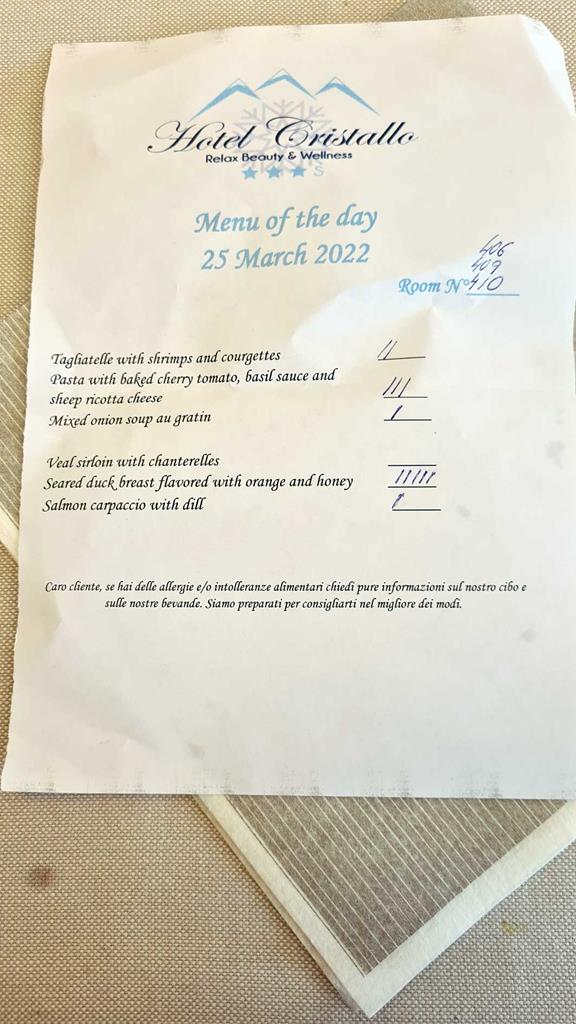 Hotel Cristallo
Relax Beauty & Wellness
S
Menu of the day
25 March 2022
406
409
Room N° 410
Tagliatelle with shrimps and courgettes II
Pasta with baked cherry tomato, basil sauce and
sheep ricotta cheese III
Mixed onion soup au gratin I
Veal sirloin with chanterelles
Seared duck breast flavored with orange and honey IIIII
Salmon carpaccio with dill I
Caro cliente, se hai delle allergie e/o intolleranze alimentari chiedi pure informazioni sul nostro cibo e
sulle nostre bevande. Siamo preparati per consigliarti nel migliore dei modi.